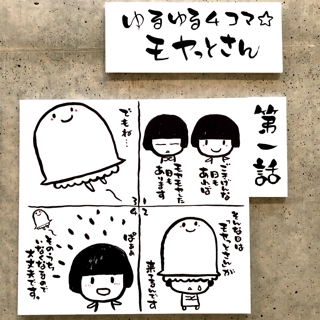 ゆるゆる4コマ☆
モヤっとさん
第一話
1
ごきげんな
日も
あれば
モヤモヤした
日も
あります
2
そんな日は
モヤっとさんが
来てるんです
3
でもね…
4
ぱぁぁ
そのうち、
いなくなるので
大丈夫です。